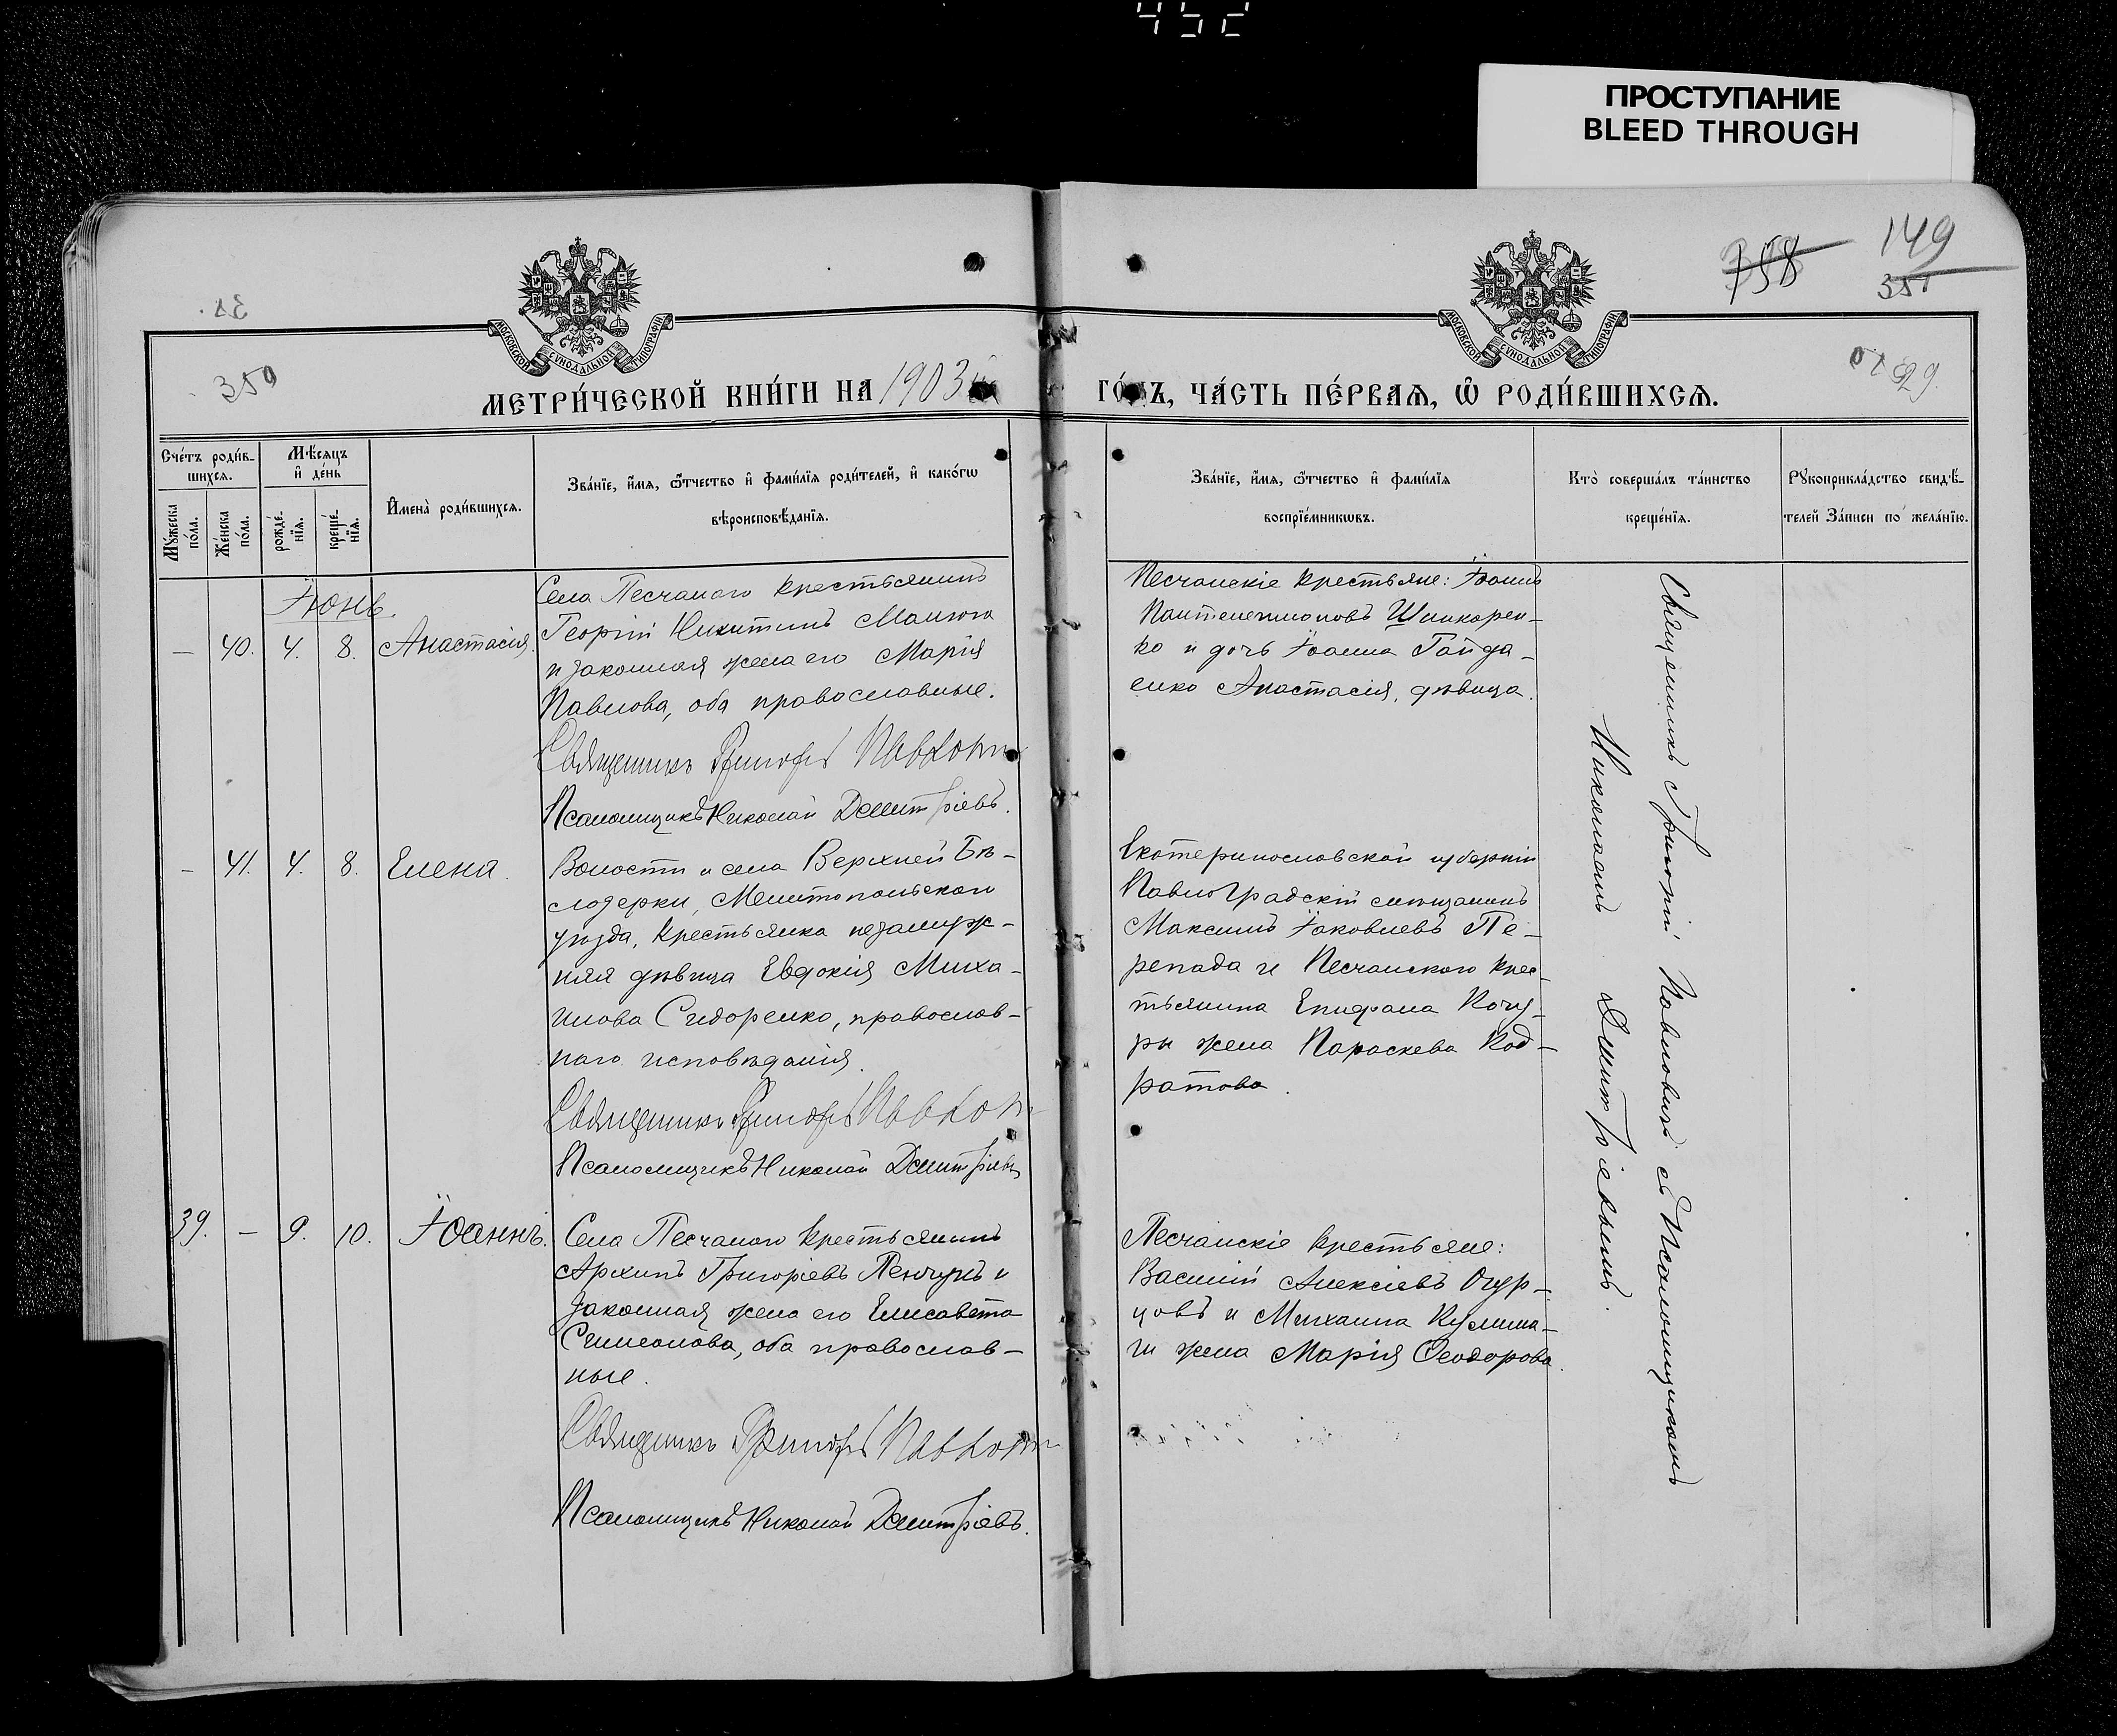 452
ПРОСТУПАНИЕ
BLEED THROUGH
149
358
351
350
МОСКОВСКОЙ СѴНОДАЛЬНОЙ ТИПОГРАФІИ
МОСКОВСКОЙ СѴНОДАЛЬНОЙ ТИПОГРАФІИ
МЕТРИ́ЧЕСКОЙ КНИ́ГИ НА 1903 ГО́ДЪ, ЧА́СТЬ ПЕ́РВАѦ, Ѡ҆ РОДИ́ВШИХСѦ.
Сче́тъ роди́в-
шихся.
Мѣ́сяцъ
и҆ де́нь
Му́жеска
по́ла.
Же́нска
по́ла.
рожде́-
нїя.
креще́-
нїя.
И҆мена̀ роди́вшихся.
Зва́нїе, и҆́мя, ѻ҆́тчество и҆ фами́лїя роди́телей, и҆ како́гѡ
вѣроисповѣ́данїя.
Зва́нїе, и҆́мя, ѻ҆́тчество и҆ фами́лїя
воспрїе́мникѡвъ.
Кто̀ соверша́лъ та́инство
креще́нїя.
Рꙋкоприкла́дство свидѣ́-
телей За́писи по жела́нїю.
Іюнь.
— 40. 4. 8. Анастасія.
Села Песчаного крестьянинъ
Георгій Никитинъ Манюга
и законная жена его Марія
Павлова, оба православные.
Священникъ Григорій
Псаломщикъ Николай Дмитріевъ.
Песчанскіе крестьяне: Іоаннъ
Пантелеимоновъ Шинкарен-
ко и дочь Іоанна Гайда-
енко Анастасія, дѣвица.
— 41. 4. 8. Елена.
Волости и села Верхней Бѣ-
лозерки, Мелитопольскаго
уѣзда, крестьянка незамуж-
няя дѣвица Евдокія Миха-
илова Сидоренко, православ-
наго исповѣданія.
Священникъ Григорій
Псаломщикъ Николай Дмитріевъ
Екатеринославской губерніи
Павлоградскій мѣщанинъ
Максимъ Іаковлевъ Пе-
репада и Песчанского крес-
тьянина Епифана Кочу-
ры жена Параскева Код-
ратова.
39. — 9. 10. Іоаннъ.
Села Песчаного крестьянинъ
Архипъ Григоріевъ Пенчукъ и
законная жена его Елисавета
Симеонова, оба православ-
ные.
Священникъ Григорій
Псаломщикъ Николай Дмитріевъ.
Песчанскіе крестьяне:
Василій Алексіевъ Огур-
цовъ и Михаила Кулиша-
ги жена Марія Ѳеодорова.
Священникъ Григорій Павловичъ съ Псаломщикомъ
Николаемъ Дмитріевымъ.